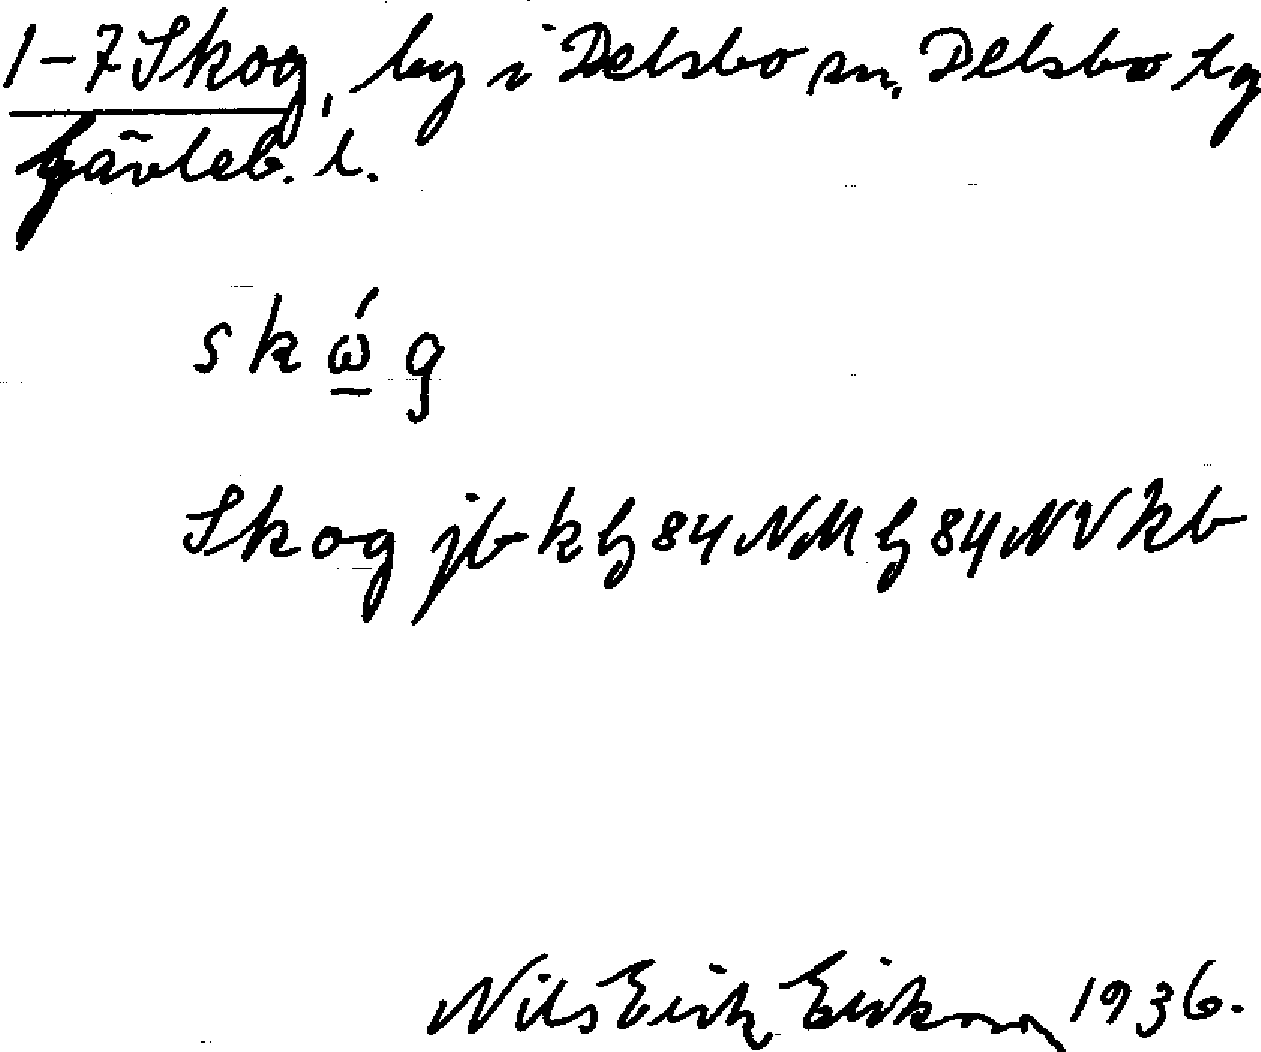 1-7 Skog, by i Delsbo sn. Delsbo tg
Gävleb. l.
skώ̲g
Skog jb k h 84 NM h 84 NV kb
Nils Erik Erikson 1936.